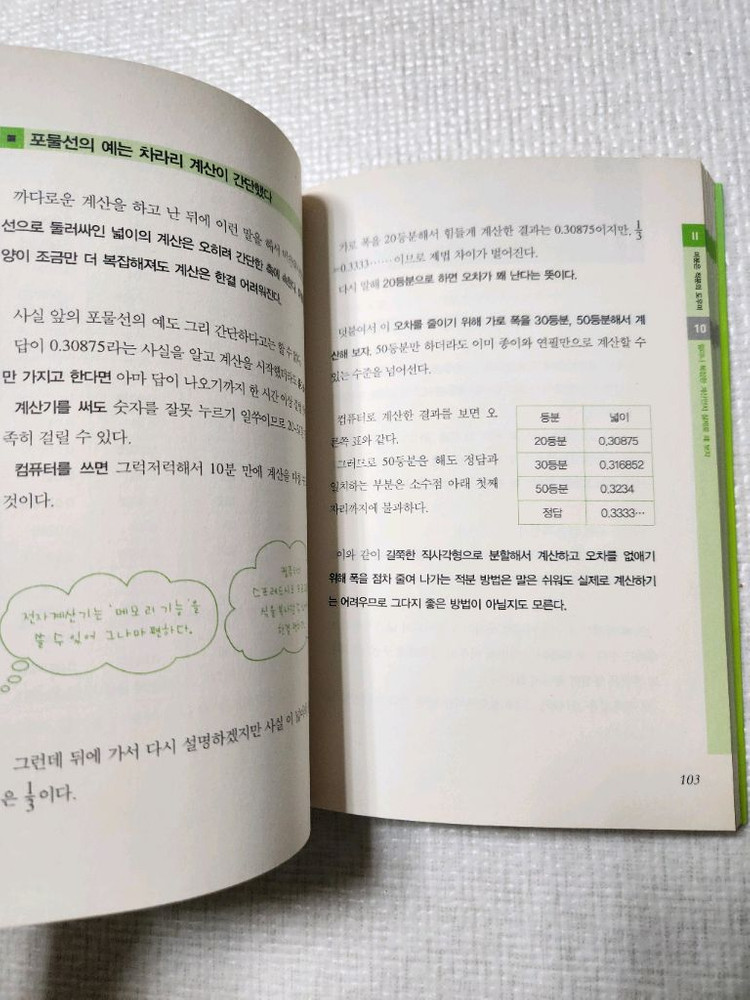 포물선의 예는 차라리 계산이 간단했다
까다로운 계산을 하고 난 뒤에 이런 말을 해서
선으로 둘러싸인 넓이의 계산은 오히려 간단한 축에 속한다.
양이 조금만 더 복잡해져도 계산은 한결 어려워진다.
사실 앞의 포물선의 예도 그리 간단하다고는 할 수
답이 0.30875라는 사실을 알고 계산을 시작했더라도
만 가지고 한다면 아마 답이 나오기까지 한 시간 이상
계산기를 써도 숫자를 잘못 누르기 일쑤이므로
족히 걸릴 수 있다.
컴퓨터를 쓰면 그럭저럭해서 10분 만에 계산을
것이다.
전자계산기는 '메모리 기능'을
쓸 수 있어 그나마 편하다.
그런데 뒤에 가서 다시 설명하겠지만 사실 이
은 1/3이다.
가로 폭을 20등분해서 힘들게 계산한 결과는 0.30875이지만, 1/3
=0.3333……이므로 제법 차이가 벌어진다.
다시 말해 20등분으로 하면 오차가 꽤 난다는 뜻이다.
덧붙여서 이 오차를 줄이기 위해 가로 폭을 30등분, 50등분해서 계
산해 보자. 50등분만 하더라도 이미 종이와 연필만으로 계산할 수
있는 수준을 넘어선다.
컴퓨터로 계산한 결과를 보면 오
른쪽 표와 같다.
그러므로 50등분을 해도 정답과
일치하는 부분은 소수점 아래 첫째
자리까지에 불과하다.
등분 넓이
20등분 0.30875
30등분 0.316852
50등분 0.3234
정답 0.3333…
이와 같이 길쭉한 직사각형으로 분할해서 계산하고 오차를 없애기
위해 폭을 점차 줄여 나가는 적분 방법은 말은 쉬워도 실제로 계산하기
는 어려우므로 그다지 좋은 방법이 아닐지도 모른다.
II
미분은 적분의 도우미
10
103